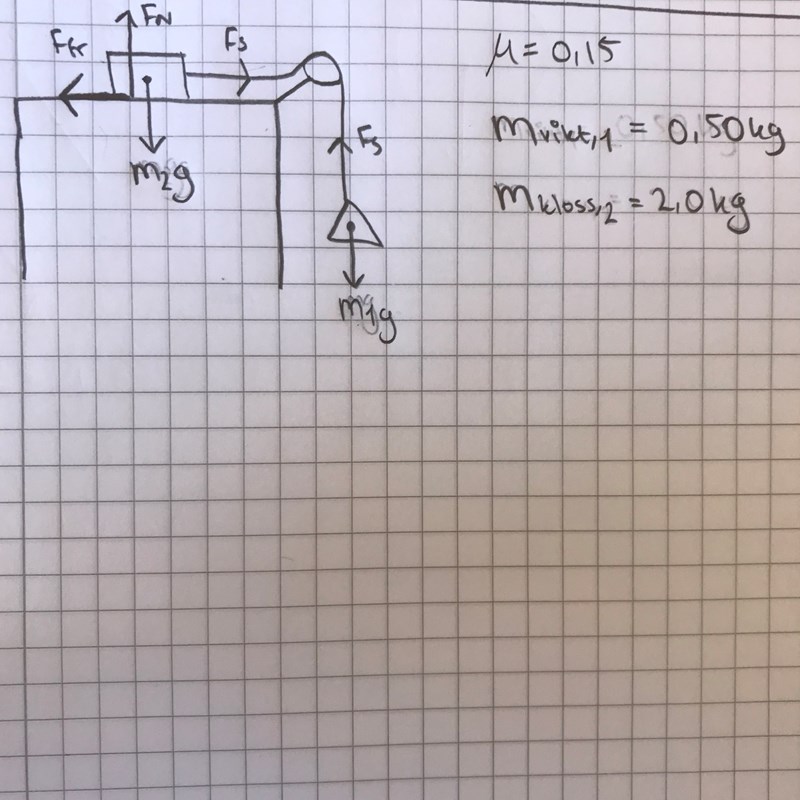 FN
Ffr
Fs
m2g
Fs
m1g
μ = 0,15
mvikt,1 = 0,50kg
mkloss,2 = 2,0kg